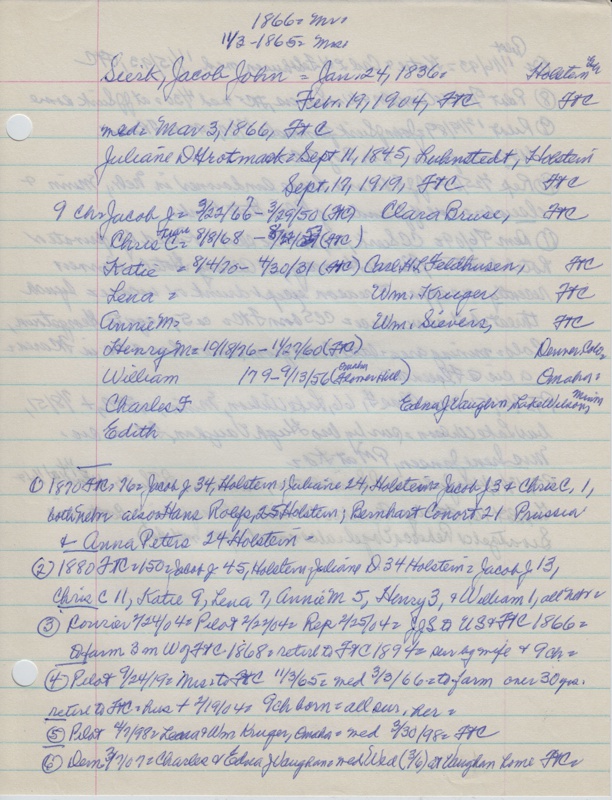 1866 = Mr.
11/3-1865 = Mrs.
Sierk, Jacob John = Jan. 24, 1836 = Holstein Ger
Febr. 19, 1904, FtC FtC
med = Mar 3, 1866, FtC
Juliane D = Sept 11, 1845, Holstein
Sept. 17, 1919, FtC FtC
9 ch = Jacob J = 3/22/67 - 3/29/50 (FtC) Clara Bruse, FtC
Chris C = 8/8/68 - (FtC)
Katie = 8/4/70 - 4/30/31 (FtC) Carl H L Feldhusen, FtC
Lena = Wm. Kruger FtC
Annie M = Wm. Sievers, FtC
Henry M = 10/18/76 - 11/27/60 (FtC) Denver Colo,
William 179 - 9/13/56 (Omaha Flower Hill) Omaha =
Charles F Edna J Vaughn, Lake Wilson, Minn
Edith
① 1870 FtC = 76 = Jacob J 34, Holstein; Juliane 24, Holstein = Jacob J 3 & Chris C, 1,
both Nebr also Hans Rolfs, 25 Holstein; Bernhart 21 Prussia
& Anna Peters 24 Holstein -
② 1880 FtC = 150 = Jacob J 45, Holstein; Juliane D 34 Holstein = Jacob J 13,
Chris C 11, Katie 9, Lena 7, Annie M 5, Henry 3, & William 1, all Nebr =
③ Courier 2/24/04 = Pilot 2/24/04 = Rep 2/25/04 = JJS to US & FtC 1866 =
to farm 3 m W of FtC 1868 = retire to FtC 1894 = sur by wife & 9 ch =
④ Pilot 9/24/19 = Mrs. to FtC 11/3/65 = med 3/3/66 = to farm over 30 yrs.
retire to FtC = hus + 2/19/04 = 9 ch born = all sur. her =
⑤ Pilot 4/7/98 = Lena & Wm Kruger, Omaha = med 3/30/98 = FtC
⑥ Dem 3/7/07 = Charles & Edna J Vaughan = med Wed (3/6) at Vaughan home FtC =